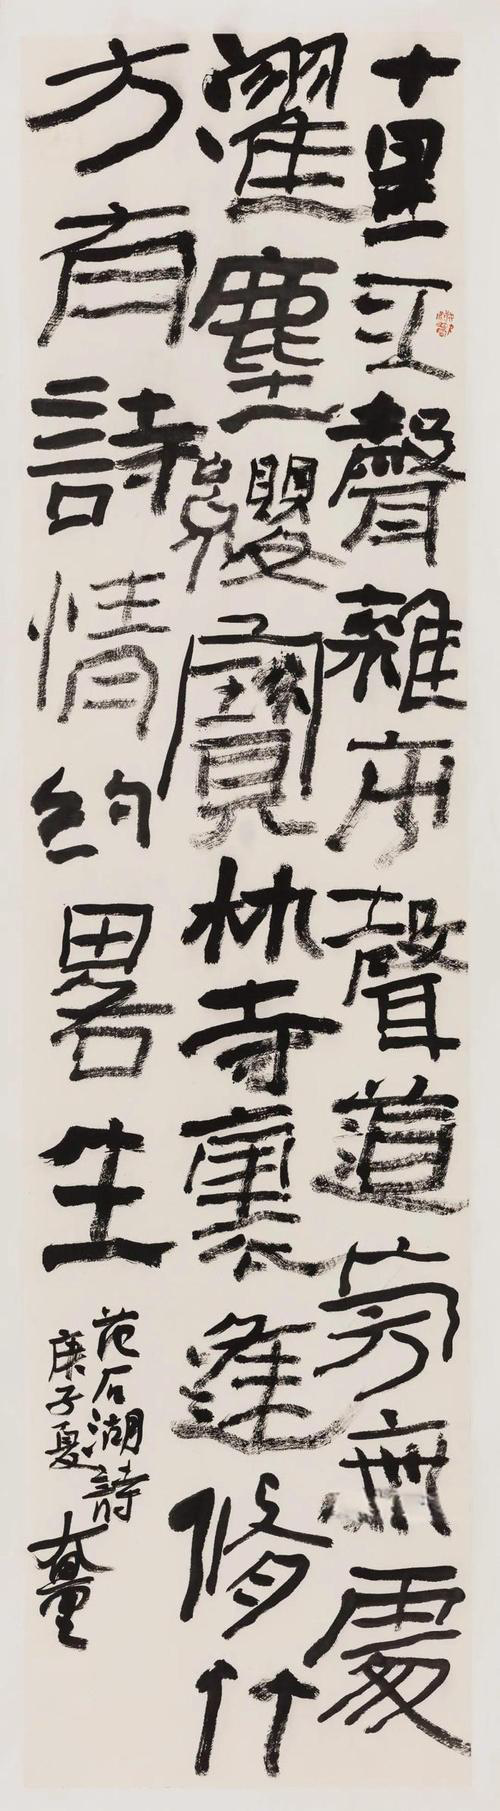 十里江聲雜市聲道旁無處
濯塵纓寶林寺裏逢脩竹
方有詩情約畧生
范石湖詩
庚子夏